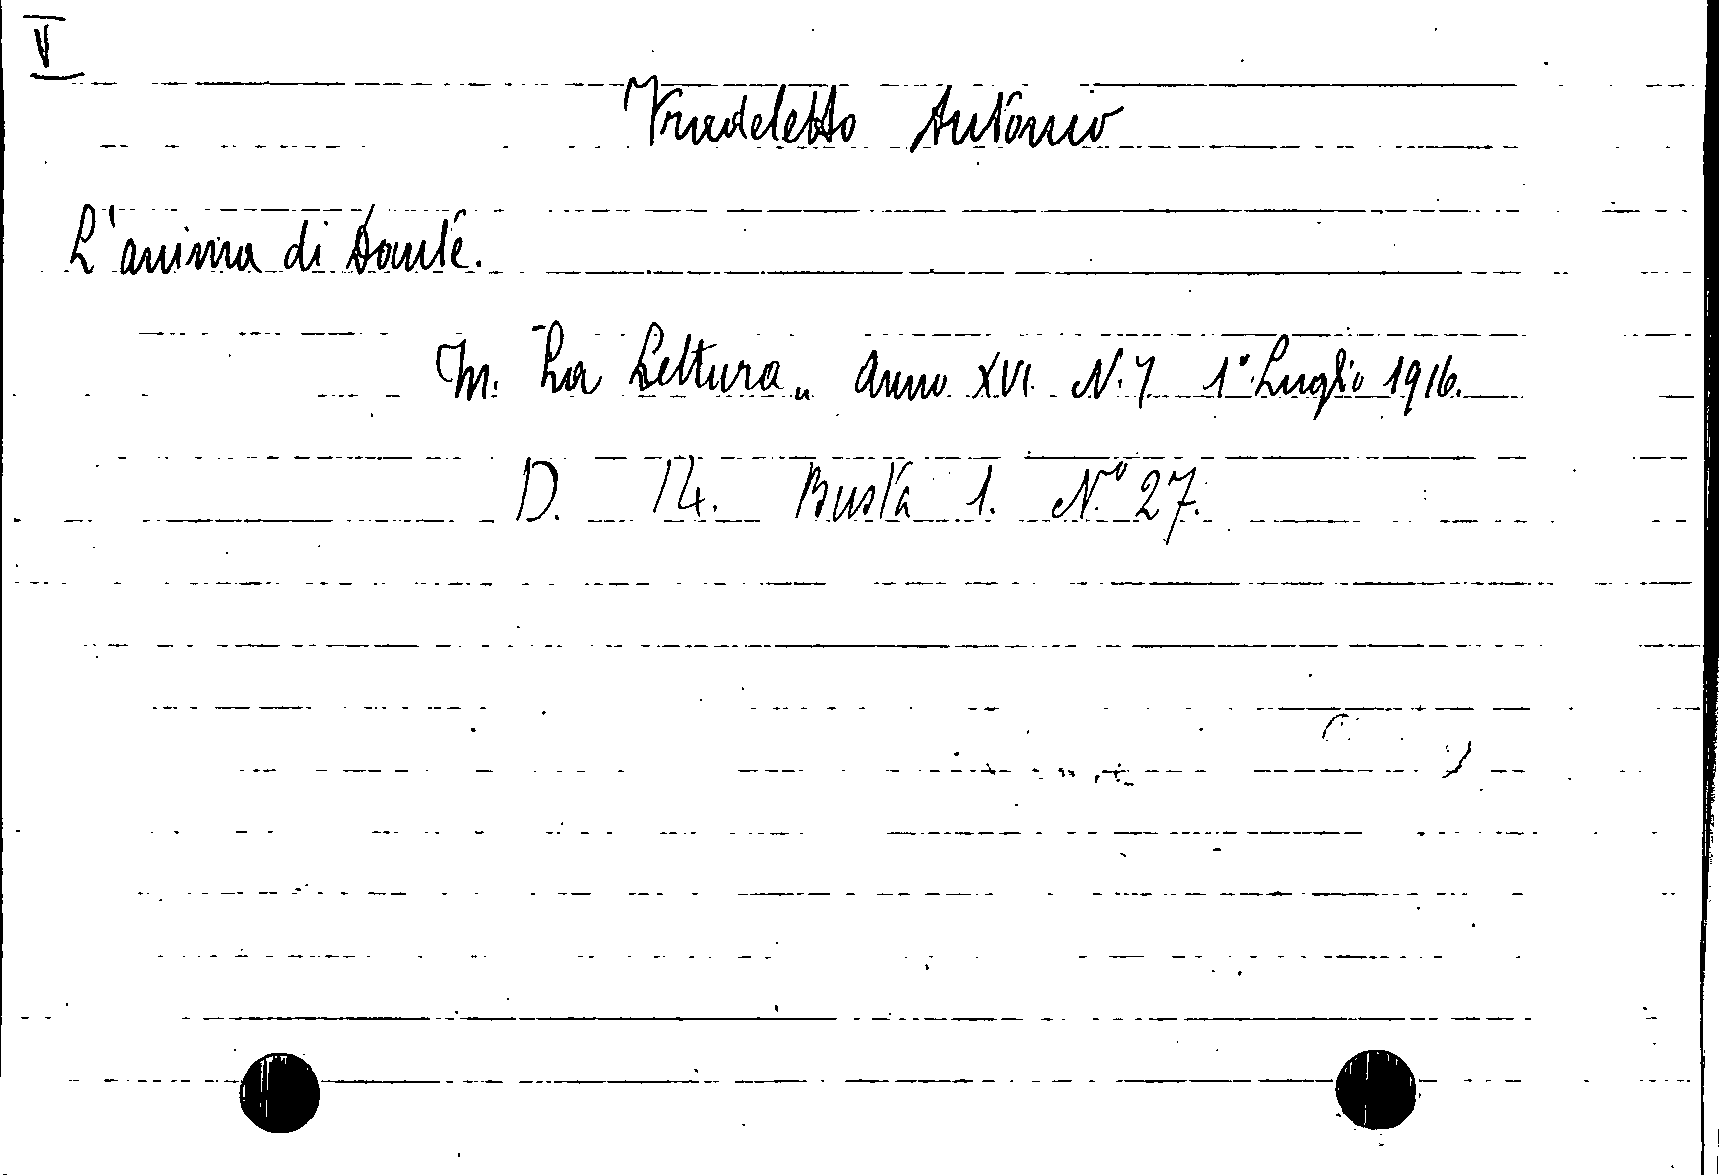 V
Fradeletto Antonio
L'anima di Dante.
In. La Lettura„ Anno XVI. N. 7 1° Luglio 1916.
D. 14. Busta 1. N.° 27.